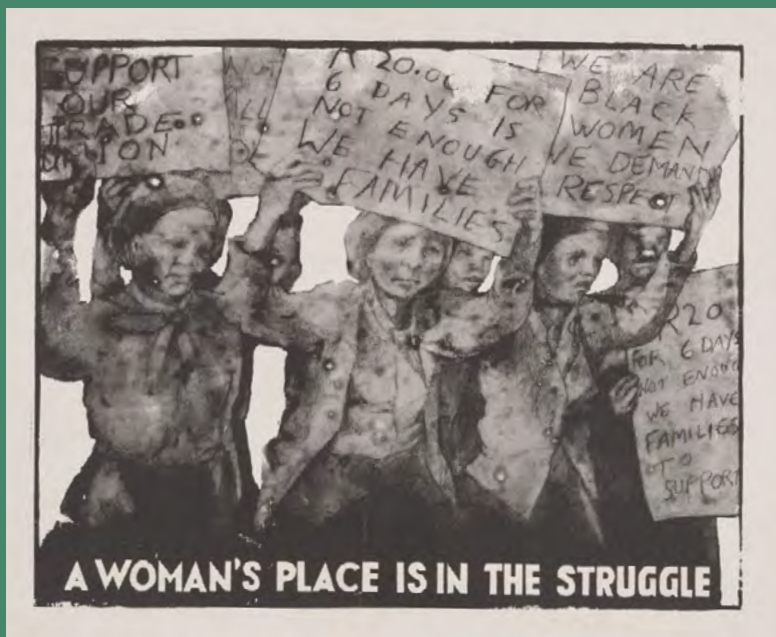 SUPPORT
OUR
TRADE
UNION
R 20.00 FOR
6 DAYS IS
NOT ENOUGH
WE HAVE
FAMILIES
WE ARE
BLACK
WOMEN
WE DEMAND
RESPECT
R20
FOR 6 DAYS
NOT ENOUGH
WE HAVE
FAMILIES
TO
SUPPORT
A WOMAN'S PLACE IS IN THE STRUGGLE